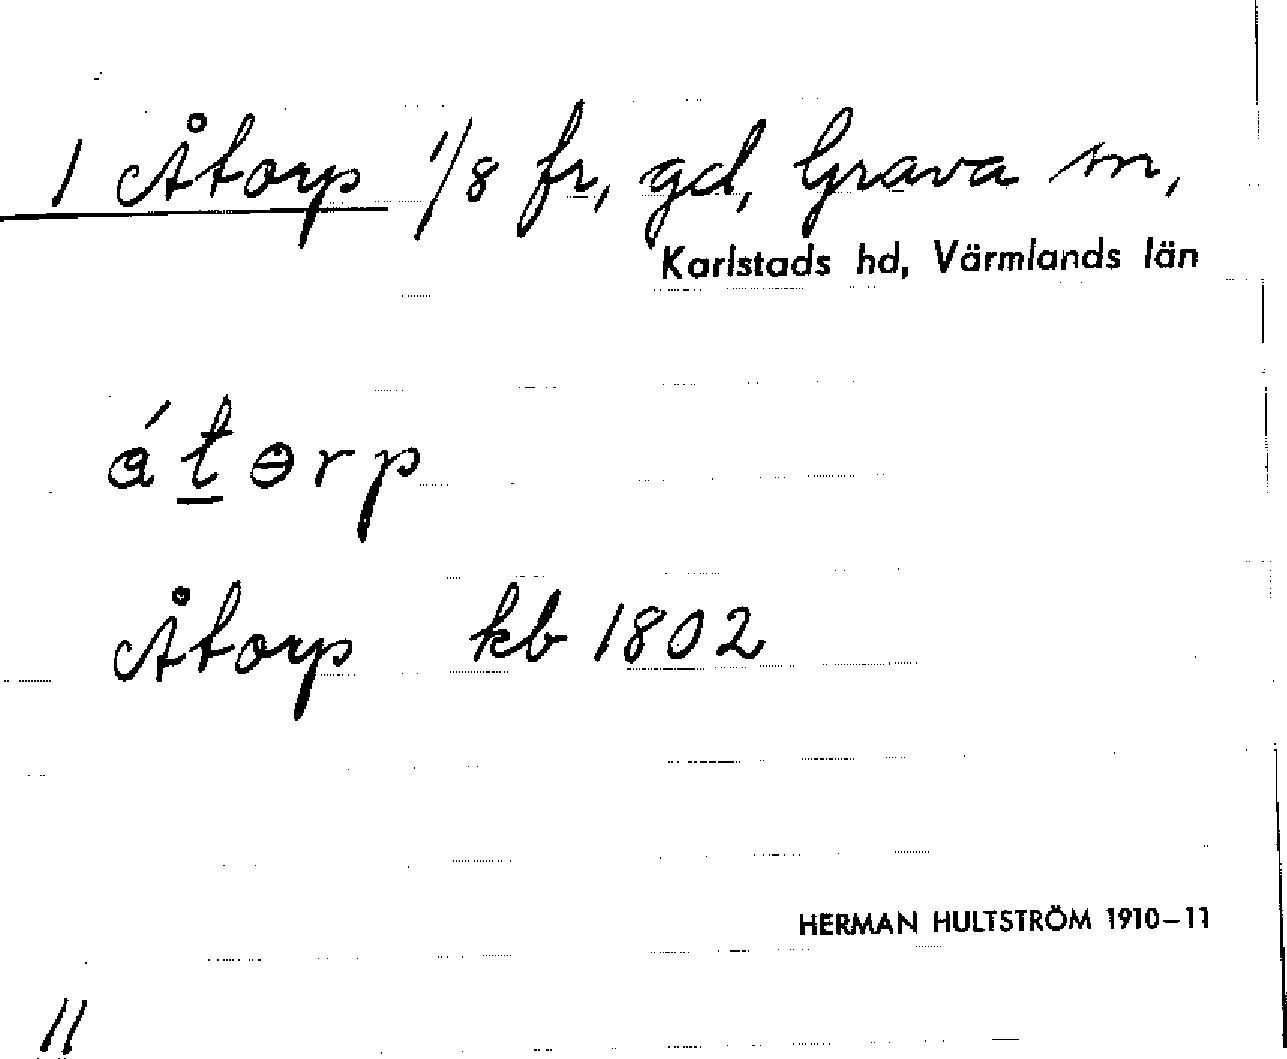 1 Åtorp 1/8 fr, gd, Grava sn,
Karlstads hd, Värmlands län
Åtorp kb 1802
HERMAN HULTSTRÖM 1910–11
11